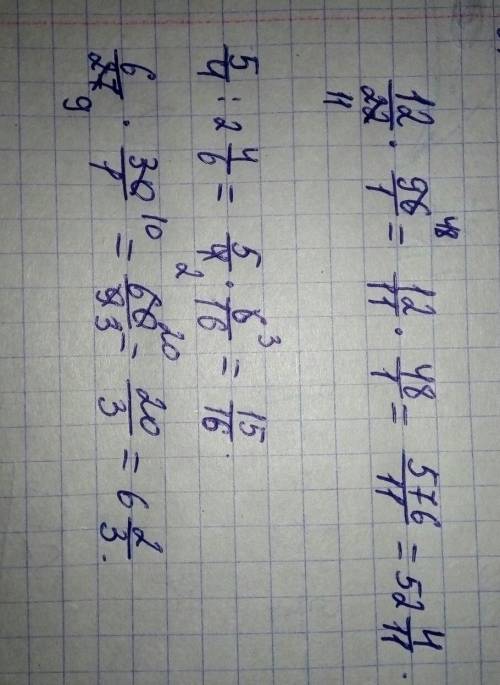 12/22 11 · 96/1 48 = 12/11 · 48/1 = 576/11 = 52 4/11.
5/4 : 2 4/6 = 5/4 2 · 6/16 3 = 15/16.
6/27 9 · 30/1 10 = 60/9 20 3 = 20/3 = 6 2/3.